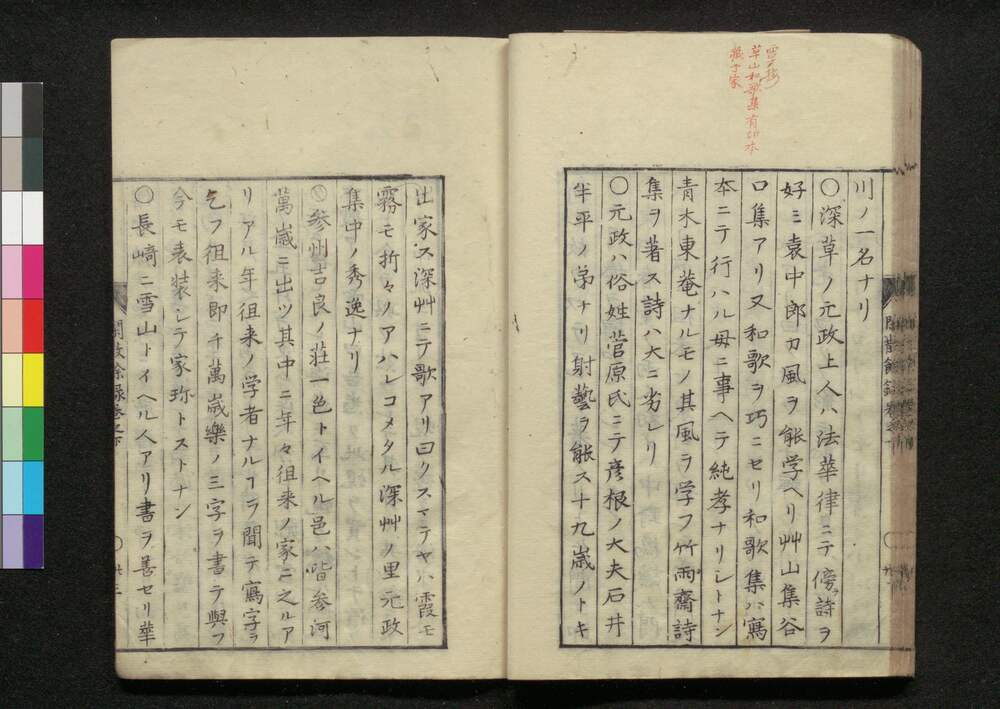 四天按
草山和歌集有印本
川ノ一名ナリ
〇深草ノ元政上人ハ法華律ニテ傍詩ヲ
好ミ袁中郎カ風ヲ能学ヘリ艸山集谷
口集アリ又和歌ヲ巧ニセリ和歌集ハ寫
本ニテ行ハル母ニ事ヘテ純孝ナリシトナン
青木東菴ナルモノ其風ヲ学フ竹雨齋詩
集ヲ著ス詩ハ大ニ劣レリ
〇元政ハ俗姓菅原氏ニテ彦根ノ大夫石井
半平ノ弟ナリ射藝ヲ能ス十九歳ノトキ
出家ス深艸ニテ歌アリ曰クスマテヤハ霞モ
霧モ折々ノアハレコメタル深艸ノ里元政
集中ノ秀逸ナリ
〇参州吉良ノ莊一色トイヘル邑ハ皆参河
萬歳ニ出ツ其中ニ年々徂来ノ家ニ之ルア
リアル年徂来ノ学者ナルヿヲ聞テ寫字ヲ
乞フ徂来即千萬歳樂ノ三字ヲ書テ與フ
今モ表装シテ家珎トストナン
〇長﨑ニ雪山トイヘル人アリ書ヲ善セリ華